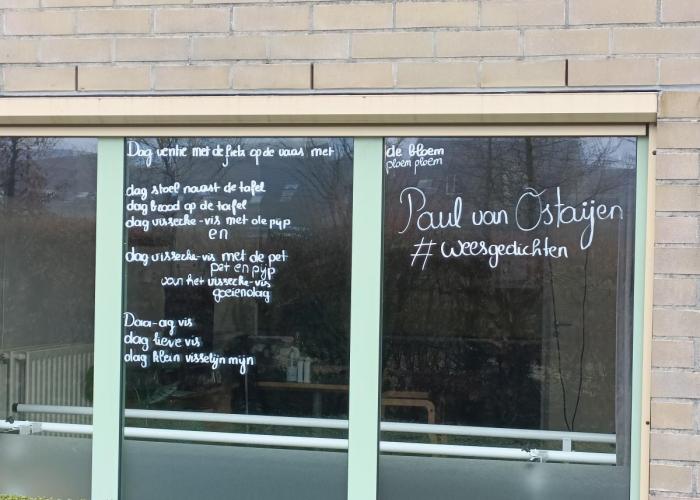 Dag ventje met de fiets op de vaas met
de bloem
ploem ploem
dag stoel naast de tafel
dag brood op de tafel
dag visseche-vis met de pijp
en
dag visseche-vis met de pet
pet en pijp
van het visseche-vis
goeiendag
Daa-ag vis
dag lieve vis
dag klein visselijn mijn
Paul van Ostaijen
#weesgedichten